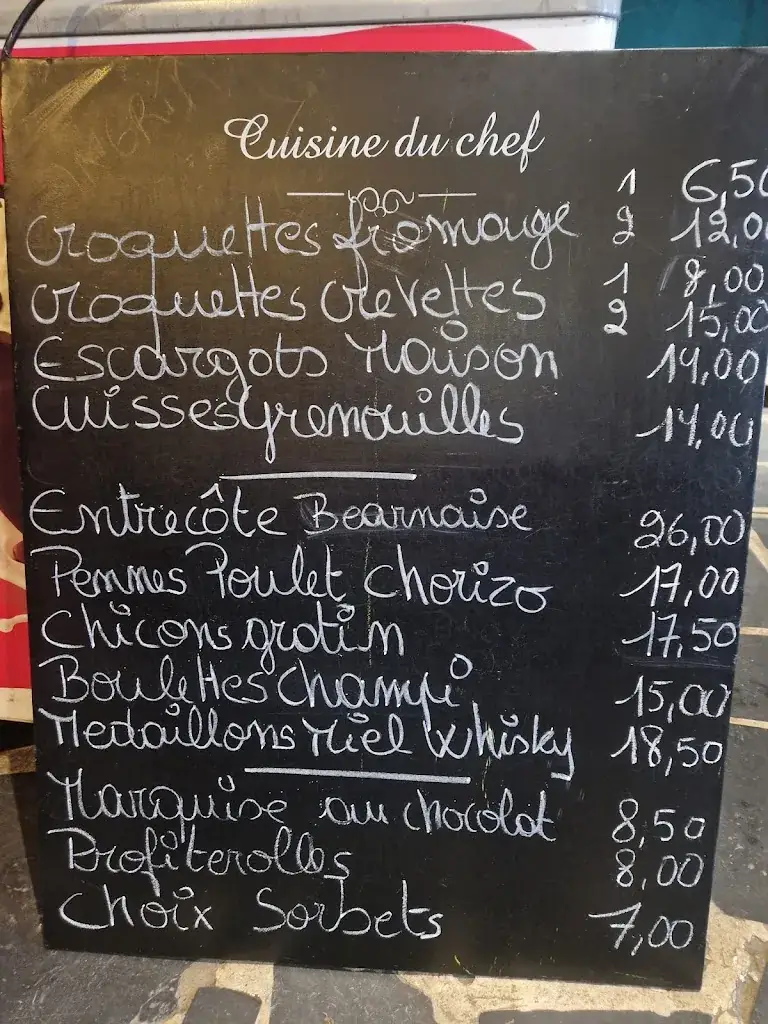 Cuisine du chef
Croquettes fromage 1 6,50
2 12,00
Croquettes crevettes 1 8,00
2 15,00
Escargots Maison 14,00
Cuisses grenouilles 14,00
Entrecôte Bearnaise 26,00
Pennes Poulet Chorizo 17,00
Chicons gratin 17,50
Boulettes champi 15,00
Medaillons Miel Whisky 18,50
Marquise au chocolat 8,50
Profiterolles 8,00
Choix Sorbets 7,00